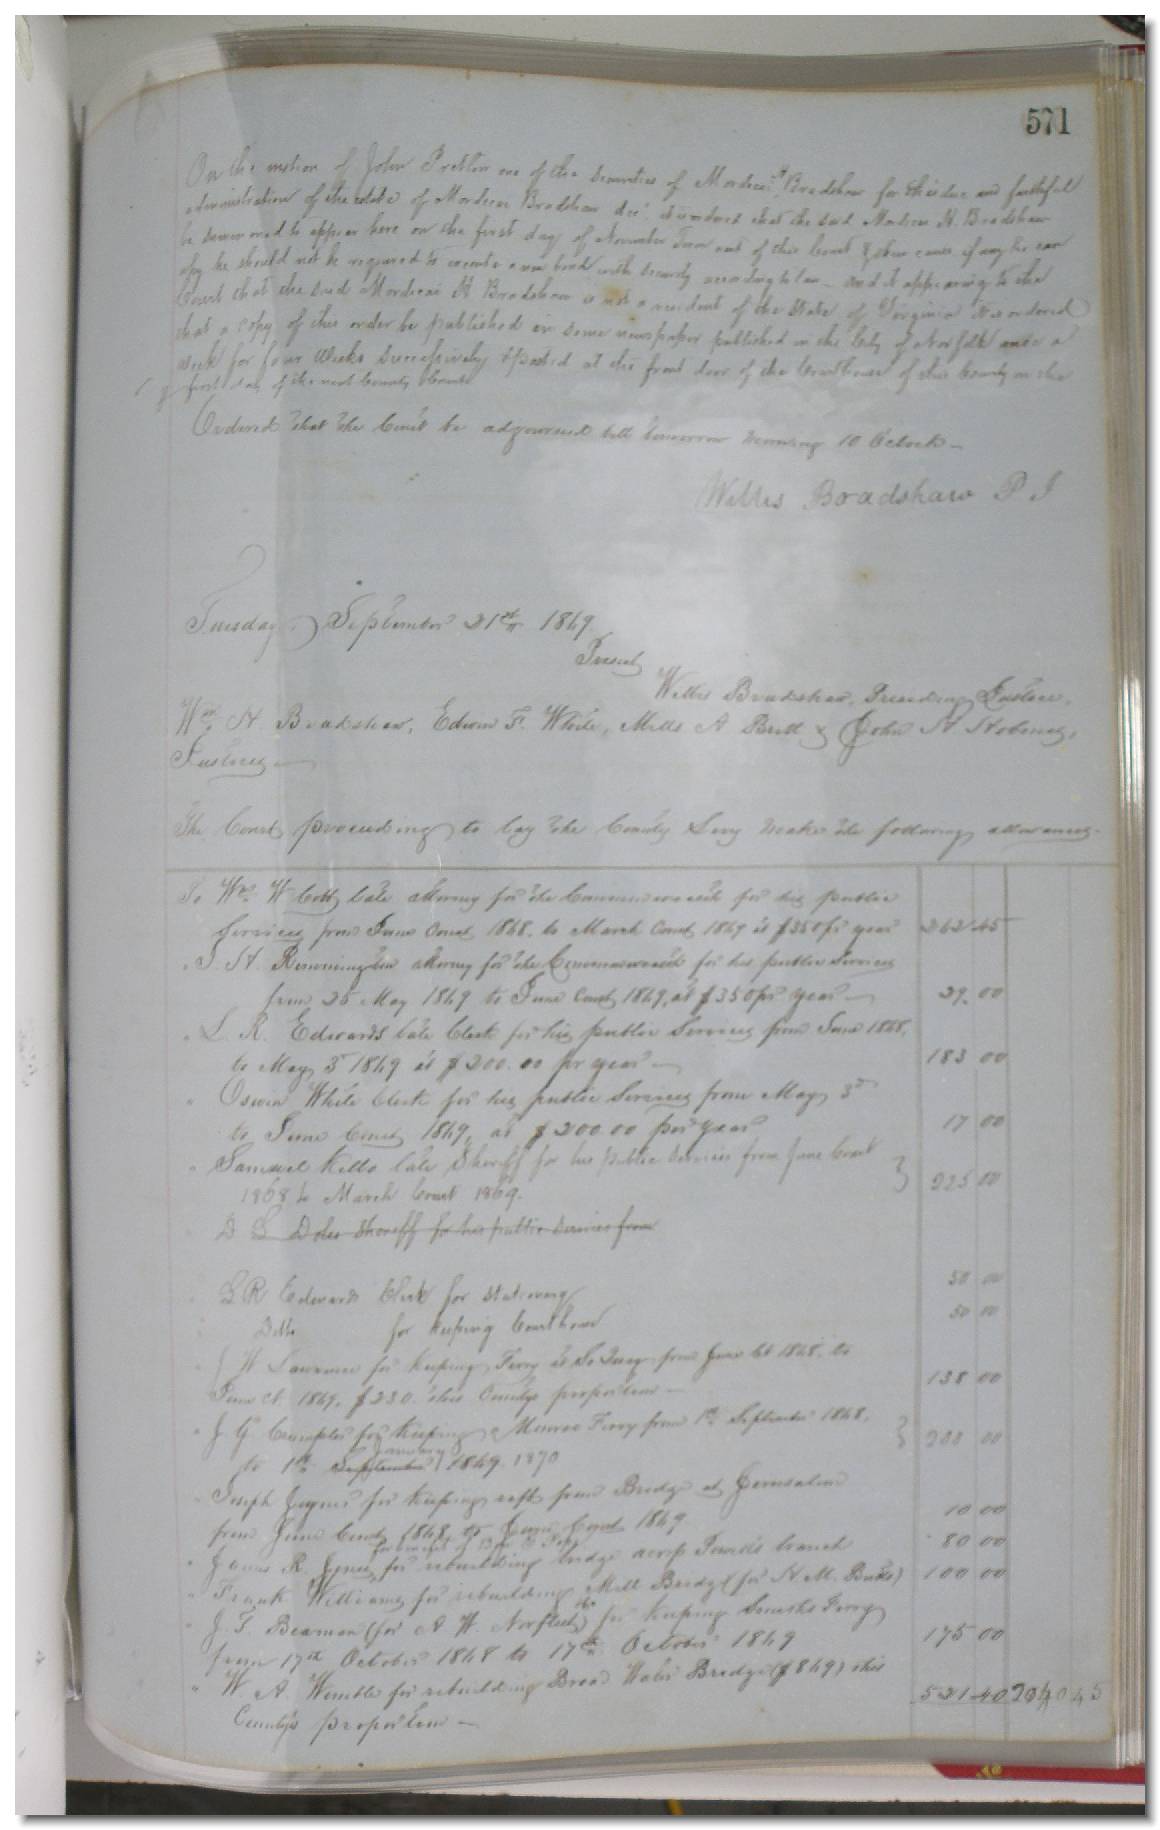 571
On the motion of John Pretlow one of the securities of Mordecai H Bradshaw for the due and faithful
administration of the estate of Mordecai Bradshaw decd. it is ordered that the said Mordecai H. Bradshaw
be summoned to appear here on the first day of November Term next of this Court & shew cause if any he can
why he should not be required to execute a new bond with security according to law - and it appearing to the
Court that the said Mordecai H Bradshaw is not a resident of the State of Virginia it is ordered
that a copy of this order be published in some newspaper published in the City of Norfolk once a
week for four weeks successively & posted at the front door of the Courthouse of this County on the
first day of the next County Court
Ordered that the Court be adjourned till tomorrow morning 10 Oclock -
Willis Bradshaw P J
Tuesday September 21st 1869.
Present
Willis Bradshaw, Presiding Justice,
Wm. H. Bradshaw, Edwin F. White, Mills A Britt & John H
Justices
The Court proceeding to lay the County Levy make the following allowances.
To Wm W Cobb late attorney for the Commonwealth for his public
Services from June Court 1868. to March Court 1869 at $350 pr year 262.45
" S. H. Remington attorney for the Commonwealth for his public Services
from 25 May 1869 to June Court 1869, at $350 pr year 29.00
" L. R. Edwards late Clerk for his public Services from June 1868,
to May 3d 1869 at $200.00 pr year 183 00
" Oswin White Clerk for his public Services from May 3d
to June Court 1869, at $200.00 per year 17 00
" Samuel Kello late Sheriff for his public services from June Court
1868 to March Court 1869. 225 00
D B Doles Sheriff for his public services from
L R Edwards Clerk for stationery 50 00
Ditto for keeping Courthouse 50 00
" J W Lawrence for keeping Ferry at So Quay from June Ct 1868. to
June ct. 1869. $230. this Countys proportion - 138 00
" J. G. Crumpler for keeping Monroe Ferry from 1st September 1868,
to 1st September January 1869. 1870 200 00
" Joseph Joyner for keeping raft from Bridge at Jerusalem
from June Court 1868 to June Court 1869 10 00
" James R. for rebuilding bridge across branch 80 00
" Frank Williams for rebuilding Mill Bridge (for H M. ) 100 00
" J. T. Beaman (for A W. Norfleet) for keeping Smiths Ferry
from 17th October 1868 to 17th October 1869 175 00
" W. A. Womble for rebuilding Broad Water Bridge ($869) this
County's proportion - 521.40 2040 45